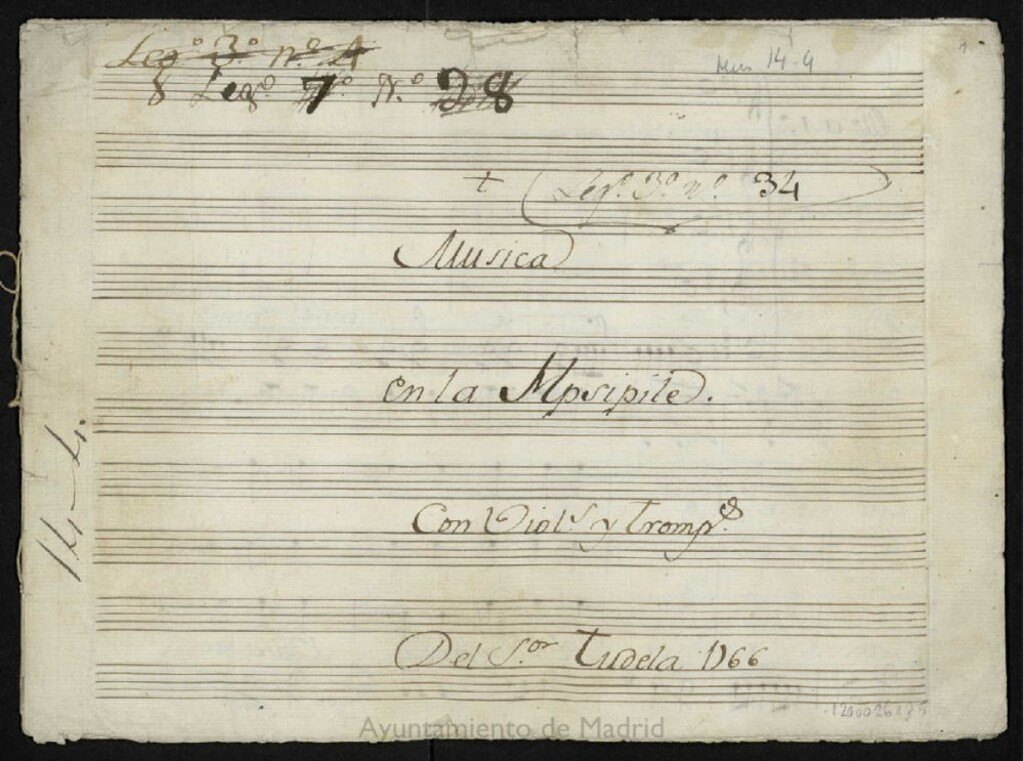 Leg.º 3.º n.º 4
Mus 14-4
8 Leg.º 7 N.º 28
+ Leg.º 3.º n.º 34
Musica
en la Ypsipile.
Con Viol.s y Tromp.s
Del S.or Tudela 1766
14-4.
Ayuntamiento de Madrid